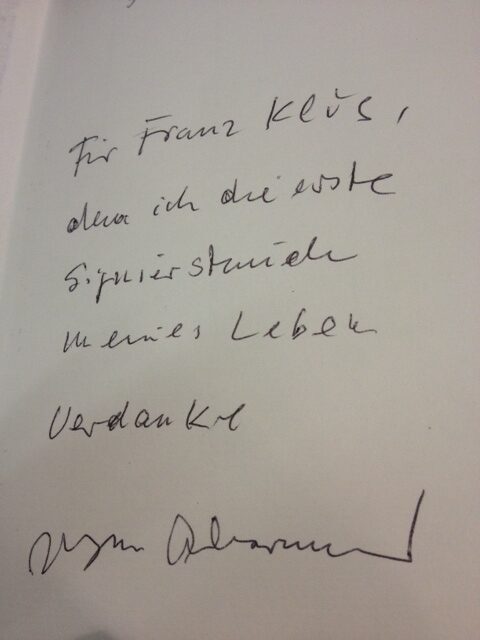 Für Franz Klŭs,
dem ich die erste
Signierstunde
meines Lebens
verdanke